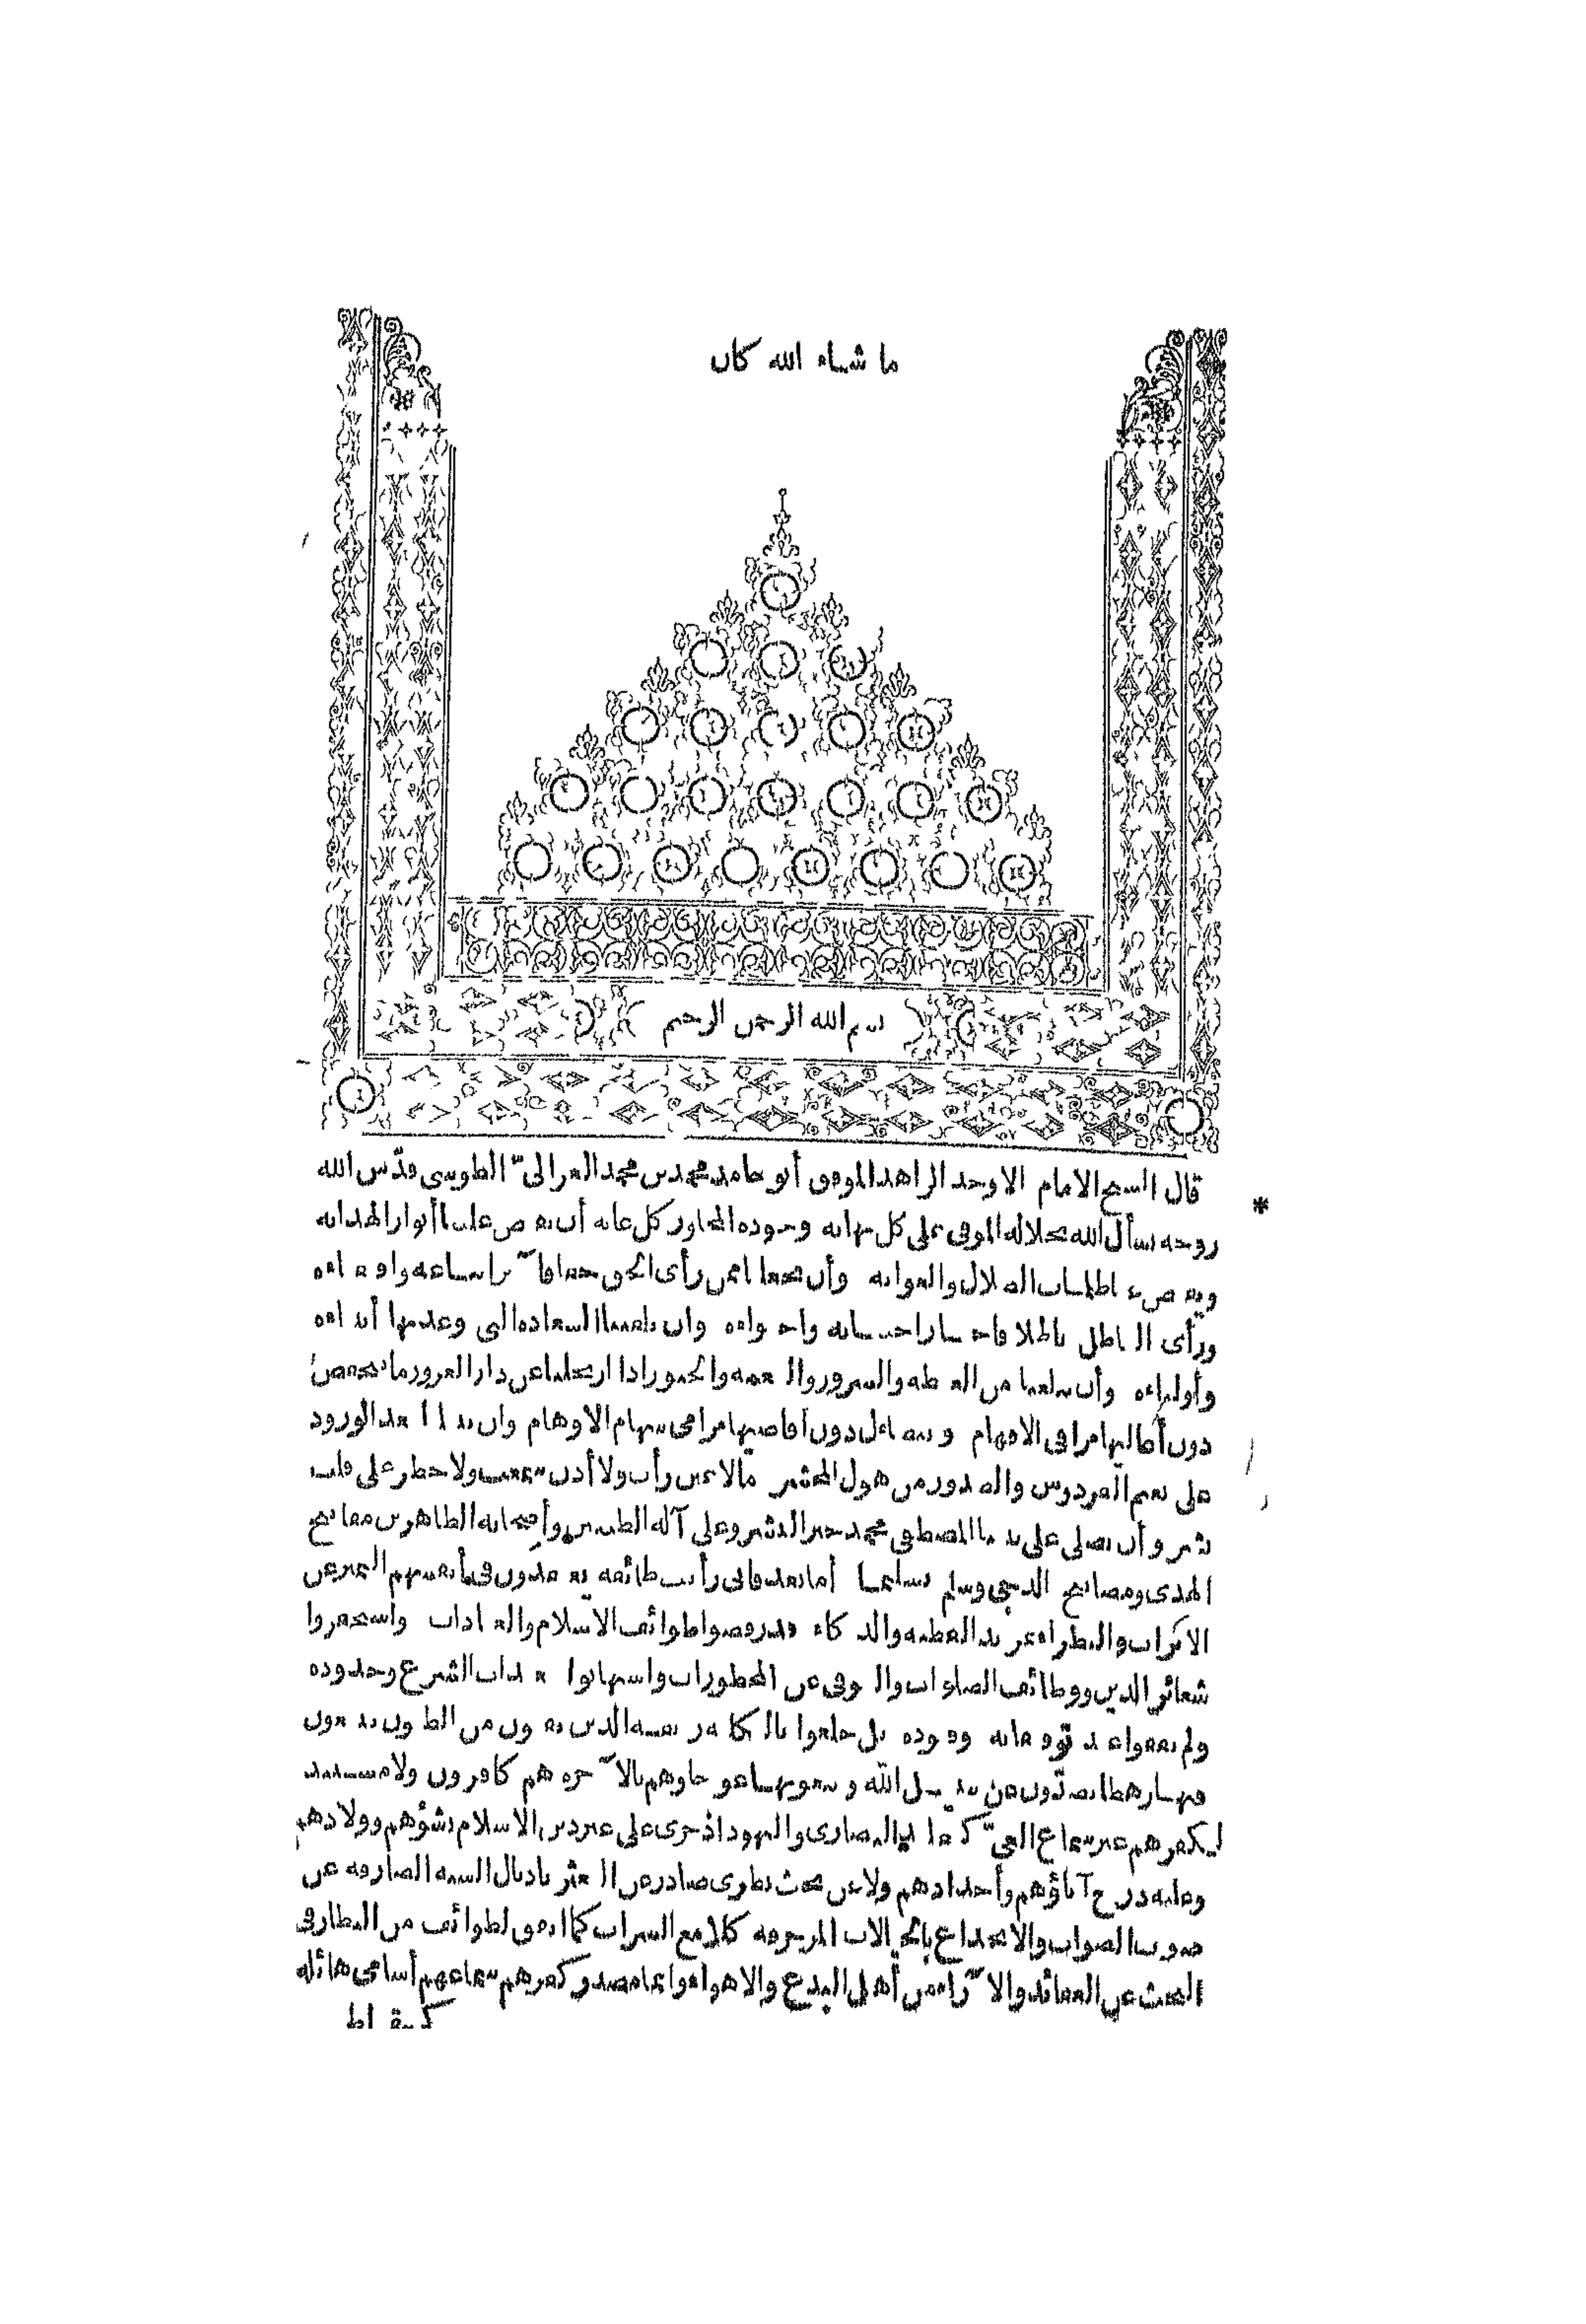 ما شاء الله كان
بسم الله الرحمن الرحيم
قال الشيخ الامام الاوحد الزاهد الموفق أبو حامد محمد بن محمد الغزالى الطوسى قدّس الله
روحه نسأل الله بجلاله الموفى على كل نهاية وجوده المجاوز كل غاية أن يفيض علينا أنوار الهداية
ويقبض عنا ظلمات الضلال والغواية وأن يجعلنا ممن رأى الحق حقا فآثر اتباعه واقتفاءه
ورأى الباطل باطلا فاختار اجتنابه واجتواءه وان يلقننا السعادة التى وعد بها أنبياءه
وأولياءه وأن يبلغنا من الغبطة والسرور والنعمة والحبور اذا ارتحلنا عن دار الغرور ما ينخفض
دون أعاليها مراقى الافهام ويتضاءل دون أقاصيها مرامى سهام الاوهام وان ينيلنا بعد الورود
على نعيم الفردوس والصدور من هول المحشر مّا لا عين رأت ولا أذن سمعت ولا خطر على قلب
بشر وأن يصلى على نبينا المصطفى محمد خير البشر وعلى آله الطيبين وأصحابه الطاهرين مفاتيح
الهدى ومصابيح الدجى وسلم تسليما أما بعد فانى رأيت طائفة يعتقدون فى أنفسهم التميز عن
الاتراب والنظراء بمزيد الفطنة والذكاء قد رفضوا طوائف الاسلام والعبادات واستحقروا
شعائر الدين ووظائف الصلوات والتوقى عن المحظورات واستهانوا بتعبدات الشرع وحدوده
ولم يقفوا عند توقيفاته وقيوده بل خلعوا بالكلية ربقة الدين بفنون من الظنون يتبعون
فيها رهطا يصدّون عن سبيل الله ويبغونها عوجا وهم بالآخرة هم كافرون ولا مستند
لكفرهم غير سماع الفىّ كعادة النصارى واليهود اذ جرى على غير دين الاسلام نشؤهم وولادهم
وعليه درج آباؤهم وأجدادهم ولا عن بحث نظرى صادر عن التعثر باذيال الشبه الصارفة عن
صوب الصواب والانخداع بالخيالات المزخرفة كلامع السراب كما اتفق لطوائف من النظار فى
البحث عن العقائد والآراء من أهل البدع والاهواء وانما مصدر كفرهم سماعهم أسامى هائلة
كبقراط